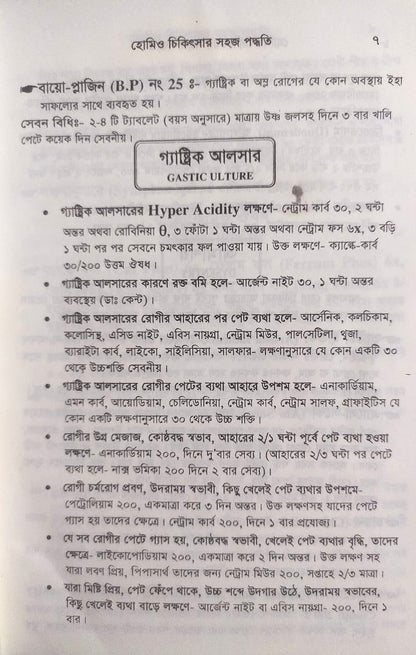 হোমিও চিকিৎসার সহজ পদ্ধতি ৭
বায়ো-প্লাজিন (B.P) নং 25 ঃ- গ্যাষ্ট্রিক বা অম্ল রোগের যে কোন অবস্থায় ইহা
সাফল্যের সাথে ব্যবহৃত হয়।
সেবন বিধিঃ- ২-৪ টি ট্যাবলেট (বয়স অনুসারে) মাত্রায় উষ্ণ জলসহ দিনে ৩ বার খালি
পেটে কয়েক দিন সেবনীয়।
গ্যাষ্ট্রিক আলসার
GASTIC ULTURE
• গ্যাষ্ট্রিক আলসারের Hyper Acidity লক্ষণে- নেট্রাম কার্ব ৩০, ২ ঘন্টা
অন্তর অথবা রোবিনিয়া θ, ৩ ফোঁটা ১ ঘন্টা অন্তর অথবা নেট্রাম ফস ৬x, ৩ বড়ি
১ ঘন্টা পর পর সেবনে চমৎকার ফল পাওয়া যায়। উক্ত লক্ষণে- ক্যাল্কে-কার্ব
৩০/২০০ উত্তম ঔষধ।
• গ্যাষ্ট্রিক আলসারের কারণে রক্ত বমি হলে- আর্জেন্ট নাইট ৩০, ১ ঘন্টা অন্তর
ব্যবস্থেয় (ডাঃ কেন্ট)।
• গ্যাষ্ট্রিক আলসারের রোগীর আহারের পর পেট ব্যথা হলে- আর্সেনিক, কলচিকাম,
কলোসিন্থ, এসিড নাইট, এবিস নায়গ্রা, নেট্রাম মিউর, পালসেটিলা, থুজা,
ব্যারাইটা কার্ব, লাইকো, সাইলিসিয়া, সালফার- লক্ষণানুসারে যে কোন একটি ৩০
থেকে উচ্চশক্তি সেবনীয়।
• গ্যাষ্ট্রিক আলসারের রোগীর পেটের ব্যথা আহারে উপশম হলে- এনাকার্ডিয়াম,
এমন কার্ব, আয়োডিয়াম, চেলিডোনিয়া, নেট্রাম কার্ব, নেট্রাম সালফ, গ্রাফাইটিস যে
কোন একটি লক্ষণানুসারে ৩০ থেকে উচ্চ শক্তি।
• রোগীর উগ্র মেজাজ, কোষ্ঠবদ্ধ স্বভাব, আহারের ২/১ ঘন্টা পূর্বে পেট ব্যথা হওয়া
লক্ষণে- এনাকার্ডিয়াম ২০০, দিনে দু'বার সেব্য। (আহারের ২/৩ ঘন্টা পর পেটে
ব্যথা হলে- নাক্স ভমিকা ২০০ দিনে ২ বার সেব্য)।
• রোগী চর্মরোগ প্রবণ, উদরাময় স্বভাবী, কিছু খেলেই পেট ব্যথার উপশমে-
পেট্রোলিয়াম ২০০, একমাত্রা করে ৩ দিন অন্তর। উক্ত লক্ষণসহ যাদের পেটে
গ্যাস হয় তাদের ক্ষেত্রে। নেট্রাম কার্ব ২০০, দিনে ১ বার প্রযোজ্য।
• যে সব রোগীর পেটে গ্যাস হয়, কোষ্ঠবদ্ধ স্বভাবী, খেলেই পেট ব্যথার বৃদ্ধি, তাদের
ক্ষেত্রে- লাইকোপোডিয়াম ২০০, একমাত্রা করে ২ দিন অন্তর। উক্ত লক্ষণ সহ
যারা লবণ প্রিয়, পিপাসার্থ তাদের জন্য নেট্রাম মিউর ২০০, সপ্তাহে ২/৩ মাত্রা।
• যারা মিষ্টি প্রিয়, পেট ফেঁপে থাকে, উচ্চ শব্দে উদগার উঠে, উদরাময় স্বভাবের,
কিছু খেলেই ব্যথা বাড়ে লক্ষণে- আর্জেন্ট নাইট বা এবিস নায়গ্রা- ২০০, দিনে ১
বার।